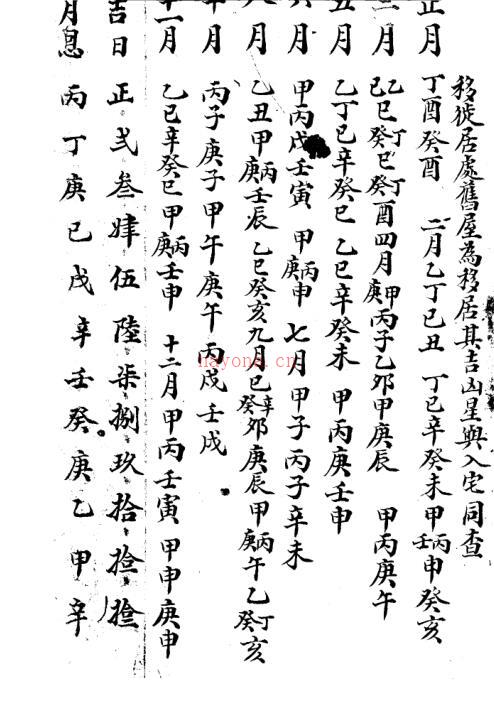 移徙居處舊屋為移居其吉凶星與入宅同查
正月 丁酉癸酉 二月乙丁己丑 丁巳辛癸未甲丙壬申癸亥
三月 乙己巳丁癸巳丁癸酉四月甲庚丙子乙夘甲庚辰 甲丙庚午
五月 乙丁巳辛癸巳 乙巳辛癸未 甲丙庚壬申
六月 甲丙戊壬寅 甲丙庚申 七月甲子丙子辛未
八月 乙丑甲丙庚壬辰 乙巳癸亥九月己辛癸夘庚辰甲丙庚午乙丁癸亥
十月 丙子庚子甲午庚午丙戌壬戌
十一月 乙巳辛癸巳甲丙庚壬申 十二月甲丙壬寅 甲申庚申
吉日 正弍叁肆伍陸柒捌玖拾拾拾
月恩 丙丁庚己戊辛壬癸庚乙甲辛
nayona.cn